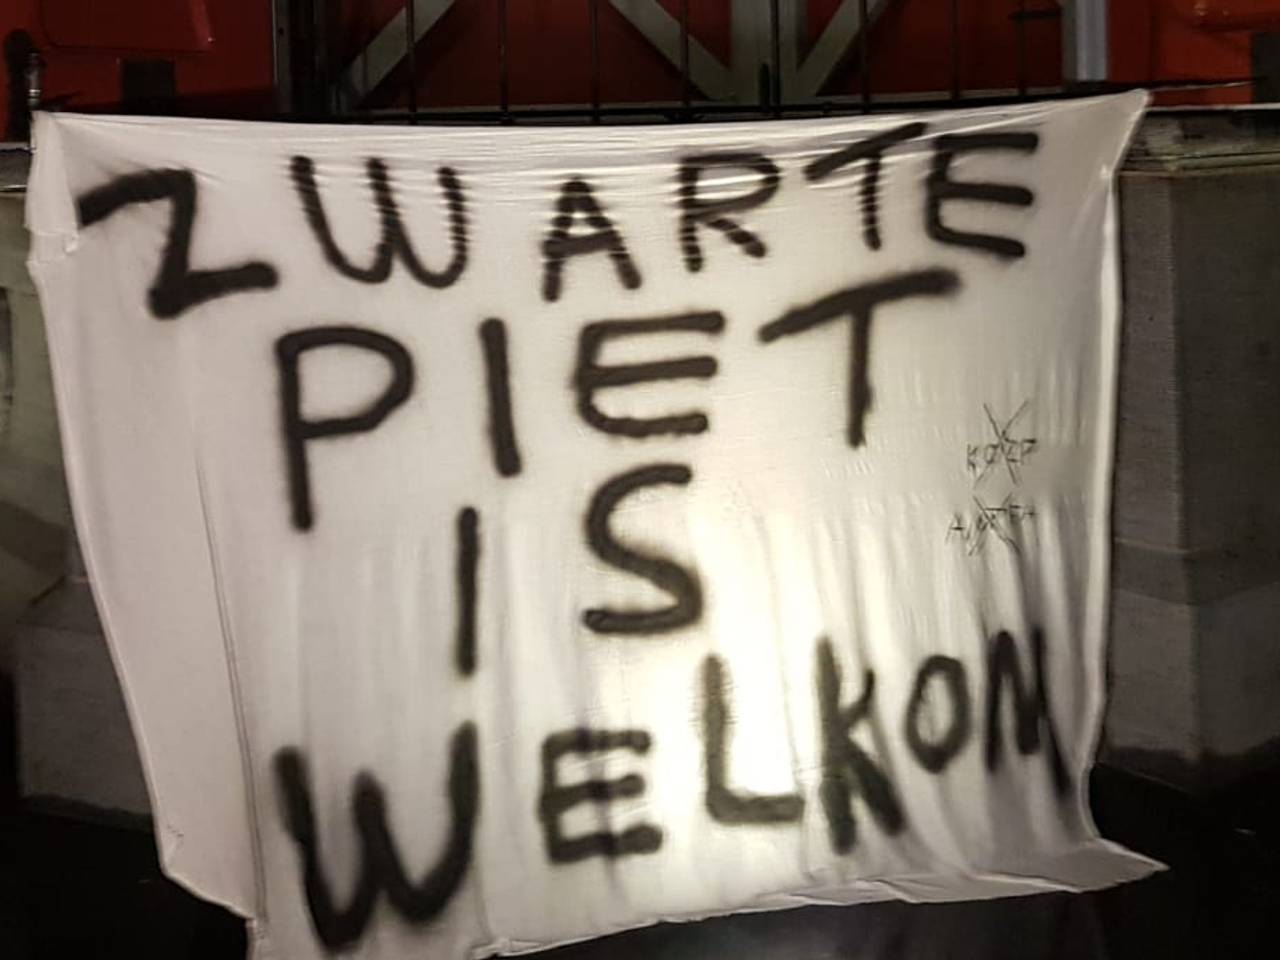 ZWARTE
PIET
IS
WELKOM